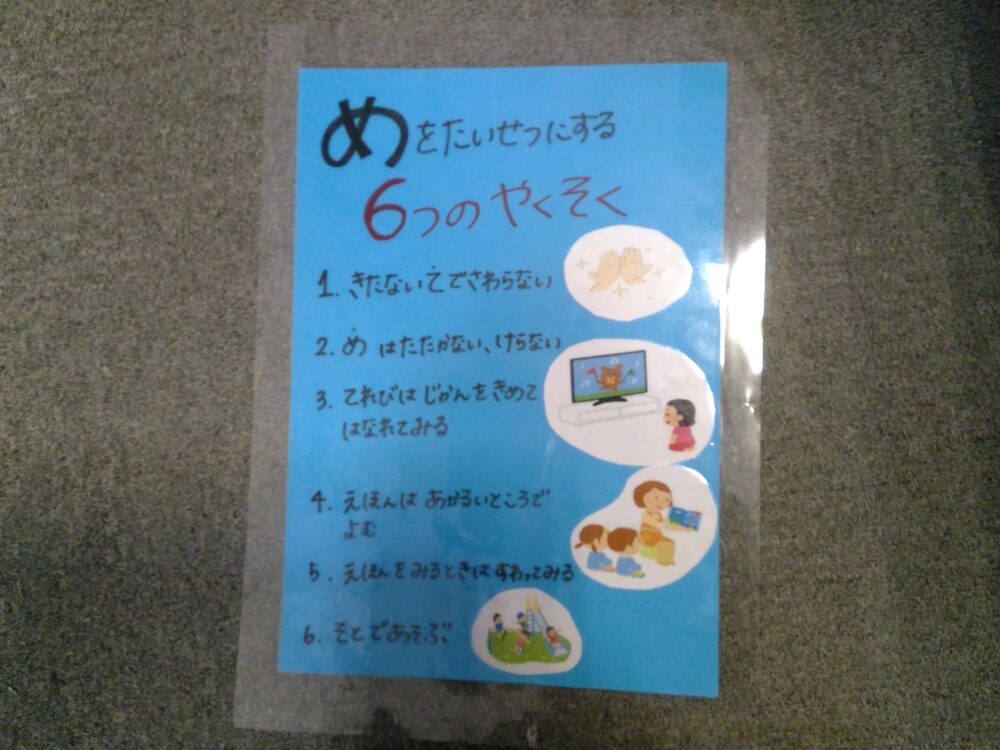 めをたいせつにする
6つのやくそく
1. きたないてでさわらない
2. めはたたかない、けらない
3. てれびはじかんをきめて
はなれてみる
4. えほんは あかるいところで
よむ
5. えほんをみるときはすわってみる
6. そとであそぶ